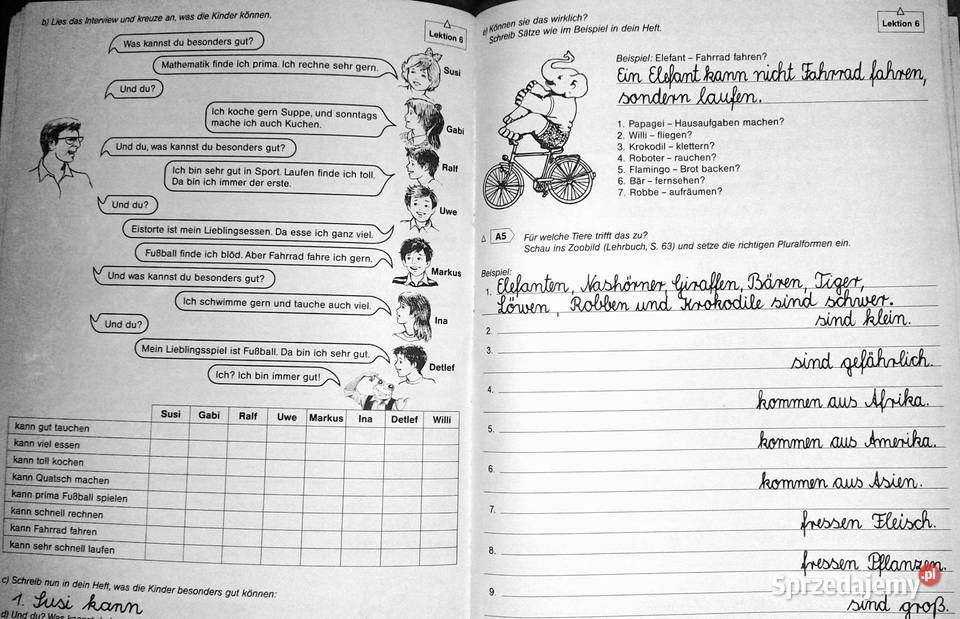 b) Lies das Interview und kreuze an, was die Kinder können.
Lektion 6
Was kannst du besonders gut?
Mathematik finde ich prima. Ich rechne sehr gern.
Susi
Und du?
Ich koche gern Suppe, und sonntags
mache ich auch Kuchen.
Gabi
Und du, was kannst du besonders gut?
Ich bin sehr gut in Sport. Laufen finde ich toll.
Da bin ich immer der erste.
Ralf
Und du?
Uwe
Eistorte ist mein Lieblingsessen. Da esse ich ganz viel.
Fußball finde ich blöd. Aber Fahrrad fahre ich gern.
Markus
Und was kannst du besonders gut?
Ich schwimme gern und tauche auch viel.
Ina
Und du?
Mein Lieblingsspiel ist Fußball. Da bin ich sehr gut.
Detlef
Ich? Ich bin immer gut!
Susi Gabi Ralf Uwe Markus Ina Detlef Willi
kann gut tauchen
kann viel essen
kann toll kochen
kann Quatsch machen
kann prima Fußball spielen
kann schnell rechnen
kann Fahrrad fahren
kann sehr schnell laufen
c) Schreib nun in dein Heft, was die Kinder besonders gut können:
1. Susi kann
d) Und du? Was kannst du
e) Können sie das wirklich?
Schreib Sätze wie im Beispiel in dein Heft.
Lektion 6
Beispiel: Elefant – Fahrrad fahren?
Ein Elefant kann nicht Fahrrad fahren,
sondern laufen.
1. Papagei – Hausaufgaben machen?
2. Willi – fliegen?
3. Krokodil – klettern?
4. Roboter – rauchen?
5. Flamingo – Brot backen?
6. Bär – fernsehen?
7. Robbe – aufräumen?
A5 Für welche Tiere trifft das zu?
Schau ins Zoobild (Lehrbuch, S. 63) und setze die richtigen Pluralformen ein.
Beispiel:
1. Elefanten, Nashörner, Giraffen, Bären, Tiger,
Löwen, Robben und Krokodile sind schwer.
2. sind klein.
3. sind gefährlich.
4. kommen aus Afrika.
5. kommen aus Amerika.
6. kommen aus Asien.
7. fressen Fleisch.
8. fressen Pflanzen.
9. sind groß.
Sprzedajemy.pl